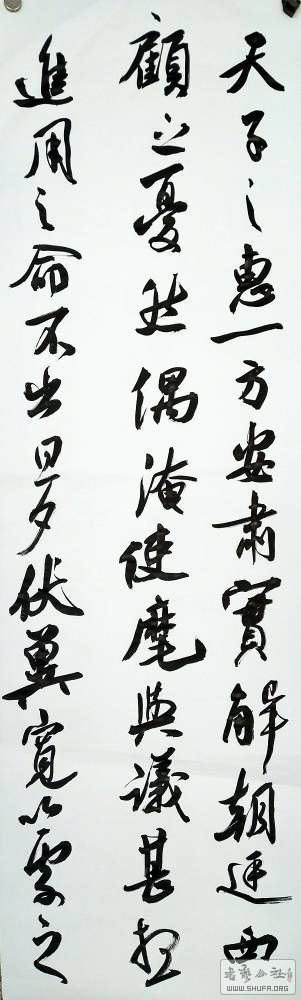 天子之惠一方安肅實解朝廷西
顧之憂然偶淹使麾與議甚想
進用之命不出旦夕伏冀寬以處之
书艺公社
WWW.SHUFA.ORG